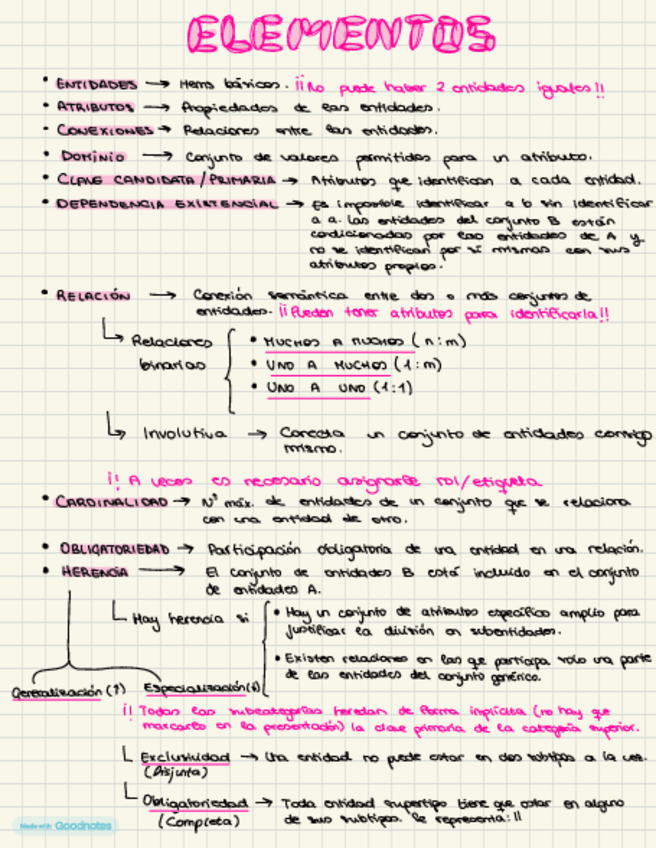 ELEMENTOS
• ENTIDADES → Items básicos. ¡¡No puede haber 2 entidades iguales!!
• ATRIBUTOS → Propiedades de las entidades.
• CONEXIONES → Relaciones entre las entidades.
• DOMINIO → Conjunto de valores permitidos para un atributo.
• CLAVE CANDIDATA/PRIMARIA → Atributos que identifican a cada entidad.
• DEPENDENCIA EXISTENCIAL → Es imposible identificar a b sin identificar
a a. Las entidades del conjunto B están
condicionadas por las entidades de A y
no se identifican por sí mismas con sus
atributos propios.
• RELACIÓN → Conexión semántica entre dos o más conjuntos de
entidades. ¡¡Pueden tener atributos para identificarla!!
↳ Relaciones
binarias
• MUCHOS A MUCHOS (n:m)
• UNO A MUCHOS (1:m)
• UNO A UNO (1:1)
↳ Involutiva → Conecta un conjunto de entidades contigo
mismo.
¡! A veces es necesario asignarle rol/etiqueta
• CARDINALIDAD → Nº máx. de entidades de un conjunto que se relaciona
con una entidad de otro.
• OBLIGATORIEDAD → Participación obligatoria de una entidad en una relación.
• HERENCIA → El conjunto de entidades B está incluido en el conjunto
de entidades A.
Hay herencia si
• Hay un conjunto de atributos específico amplio para
justificar la división en subentidades.
• Existen relaciones en las que participa solo una parte
de las entidades del conjunto genérico.
Generalización (↑) Especialización (↓)
¡! Todas las subcategorías heredan de forma implícita (no hay que
marcarlo en la presentación) la clave primaria de la categoría superior.
Exclusividad → Una entidad no puede estar en dos subtipos a la vez.
(Disjunta)
Obligatoriedad → Toda entidad supertipo tiene que estar en alguno
(Completa) de sus subtipos. Se representa: ||
Made with Goodnotes